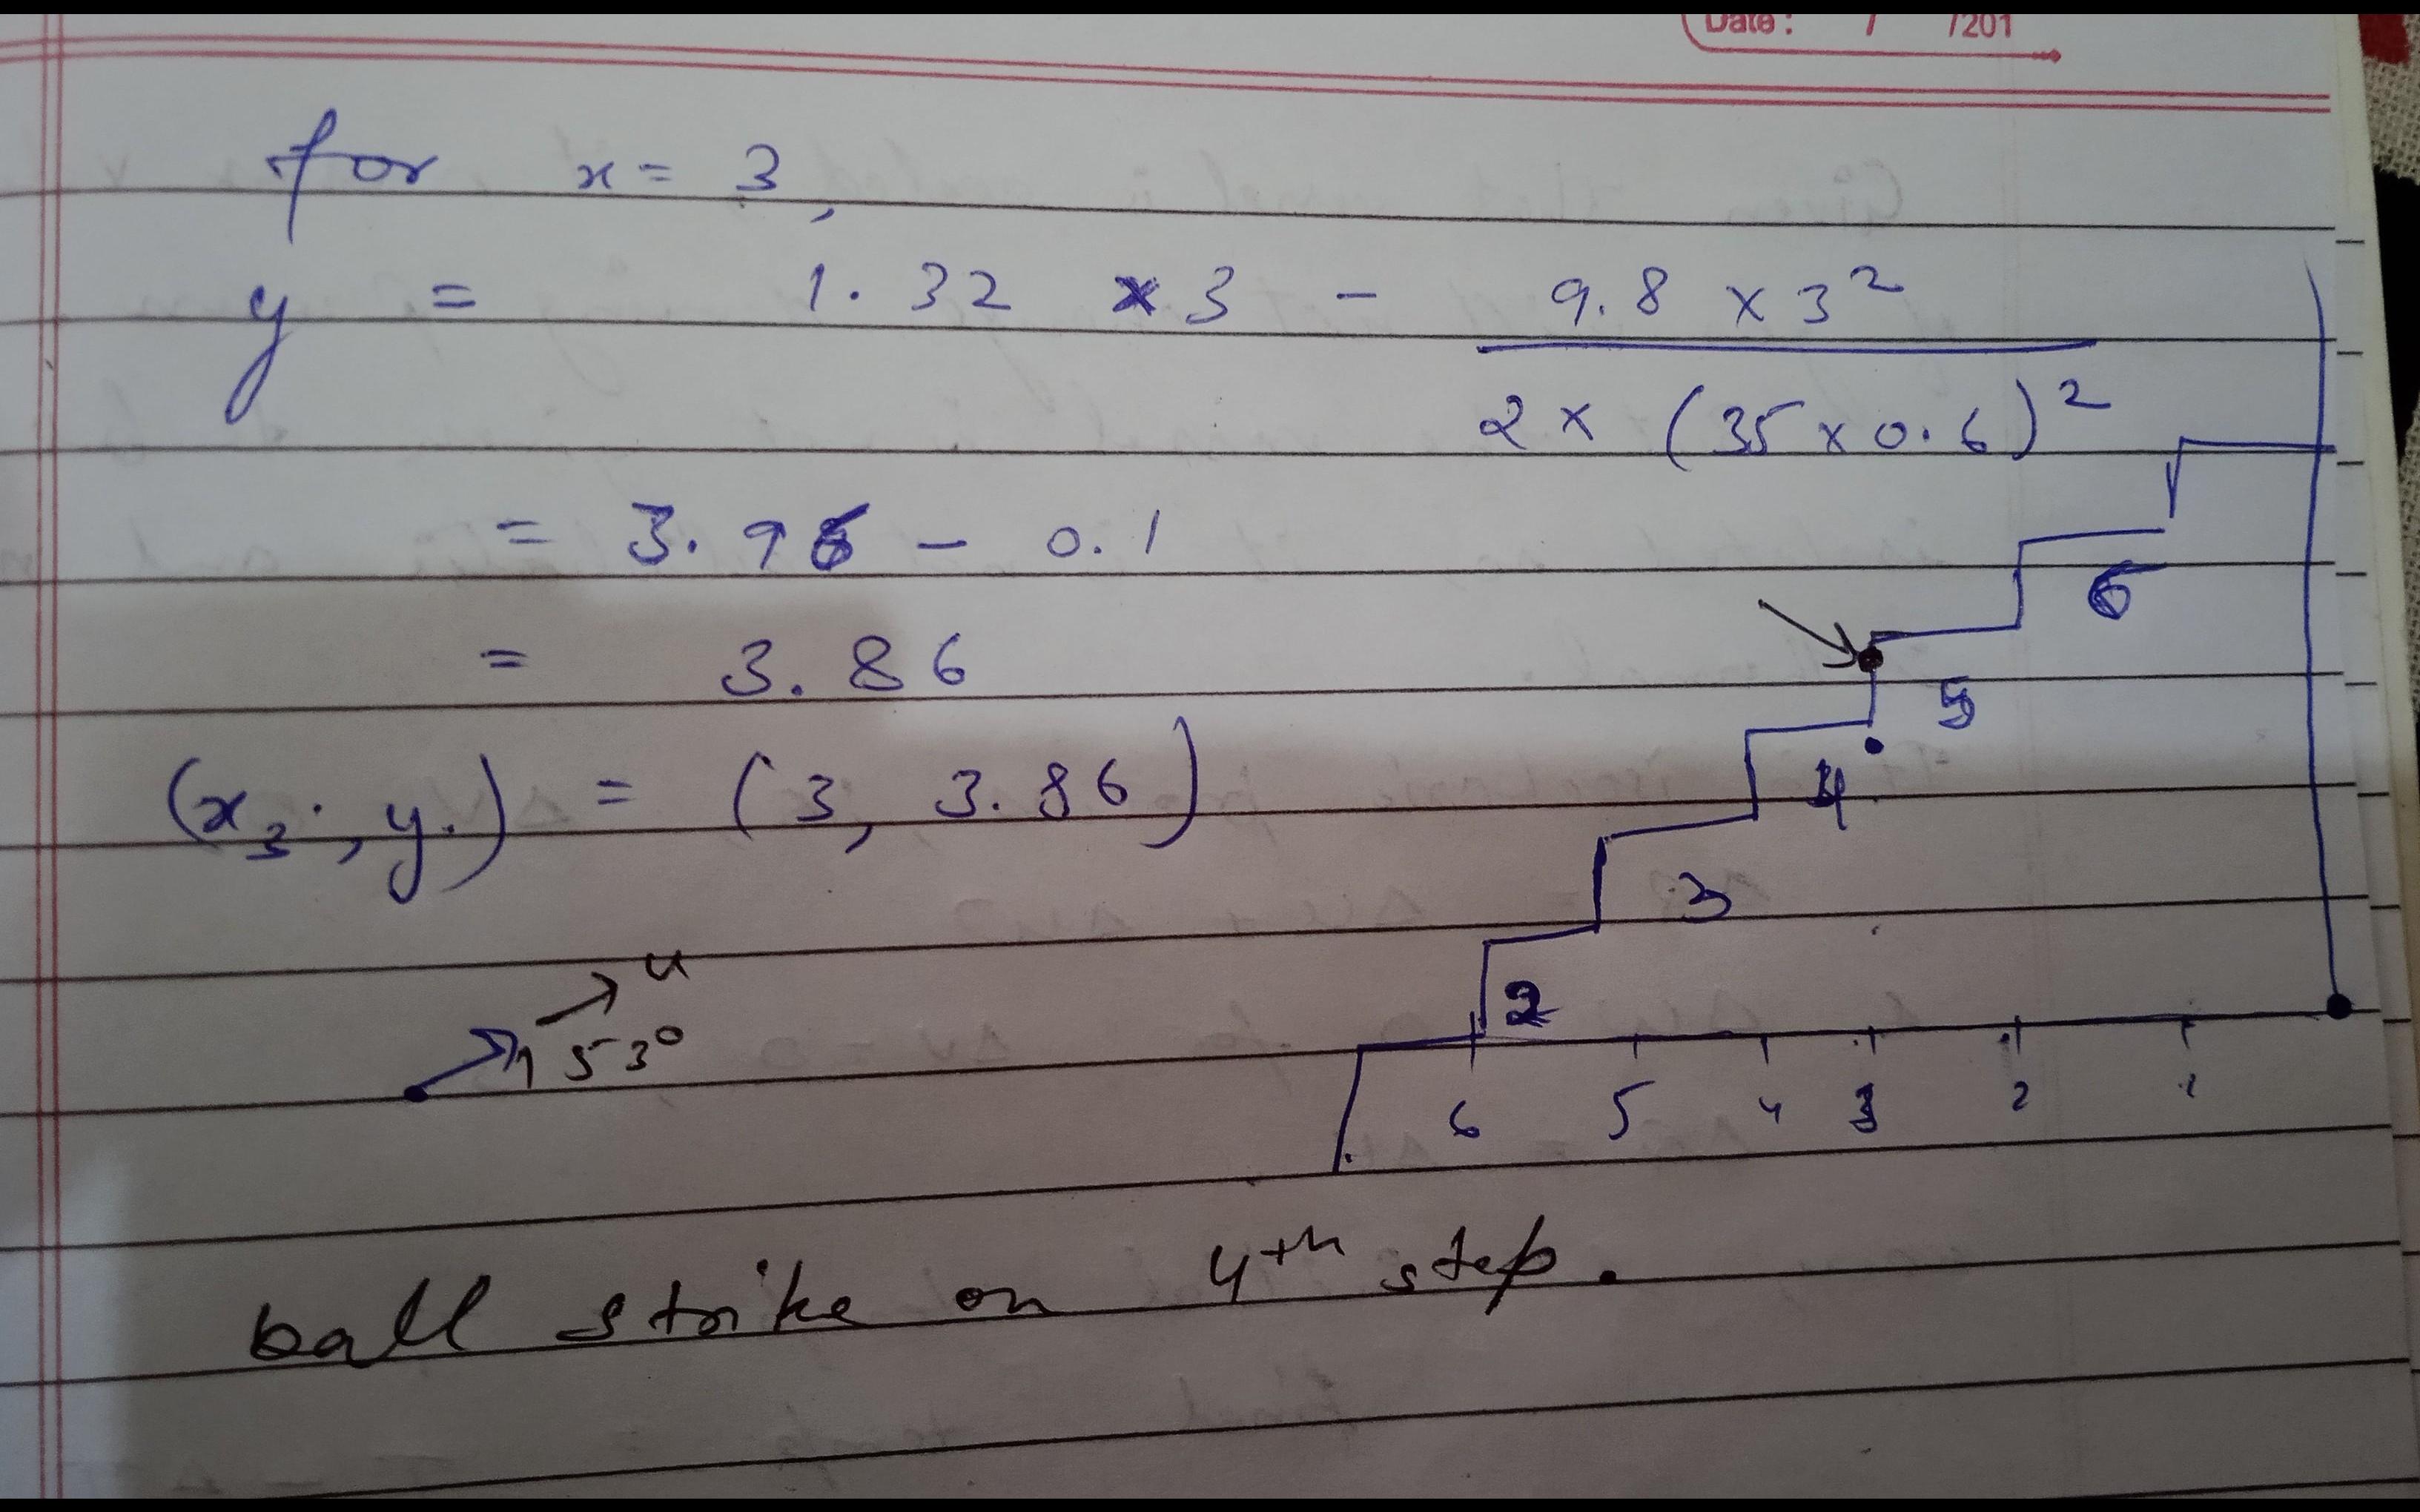 Date: / /201
for x = 3,
y = 1.32 x 3 - 9.8 x 3²
2 x (35 x 0.6)²
= 3.96 - 0.1
= 3.86
6
5
(x₃, y.) = (3, 3.86)
4
3
u
53°
2
6 5 4 3 2 1
ball strike on 4th step.